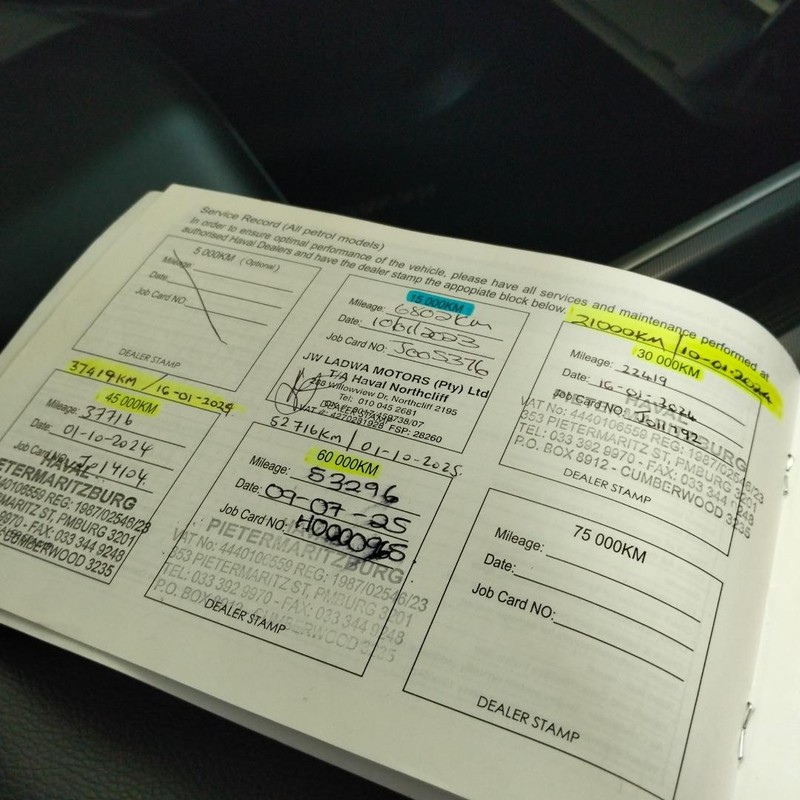 Service Record (All petrol models)
In order to ensure optimal performance of the vehicle, please have all services and maintenance performed at
authorised Haval Dealers and have the dealer stamp the appopiate block below.
5 000KM (Optional)
Mileage:
Date:
Job Card NO:
DEALER STAMP
15 000KM
Mileage: 6802km
Date: 10/01/2023
Job Card NO: J005376
JW LADWA MOTORS (Pty) Ltd
T/A Haval Northcliff
Willowview Dr, Northcliff 2195
Tel: 010 045 2681
FSP: 28260
21000KM / 10-01-2024
30 000KM
Mileage: 22419
Date: 16-01-2024
Job Card NO: J011792
HAVAL
VAT No: 4440106559 REG: 1987/02546/23
353 PIETERMARITZ ST, PMBURG 3201
TEL: 033 392 9970 - FAX: 033 344 9248
P.O. BOX 8912 - CUMBERWOOD 3235
DEALER STAMP
37419KM / 16-01-2024
45 000KM
Mileage: 37716
Date: 01-10-2024
Job Card NO: Jp14104
HAVAL
PIETERMARITZBURG
4440106559 REG: 1987/02546/23
PIETERMARITZ ST, PMBURG 3201
9970 - FAX: 033 344 9248
CUMBERWOOD 3235
52716km / 01-10-2025
60 000KM
Mileage: 53296
Date: 09-07-25
Job Card NO: H0000965
PIETERMARITZBURG
VAT No: 4440106559 REG: 1987/02546/23
353 PIETERMARITZ ST, PMBURG 3201
TEL: 033 392 9970 - FAX: 033 344 9248
P.O. BOX 8912 - CUMBERWOOD 3235
DEALER STAMP
75 000KM
Mileage:
Date:
Job Card NO:
DEALER STAMP